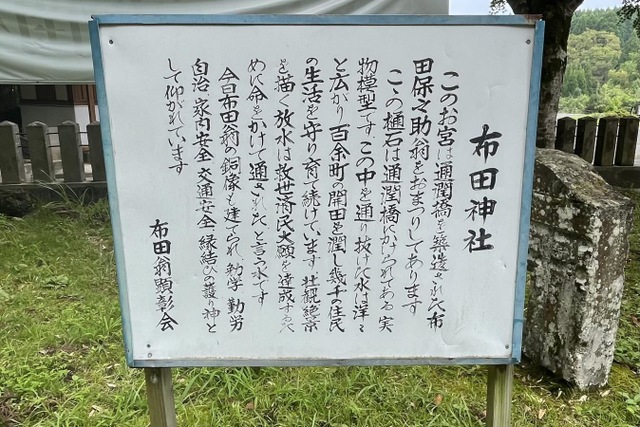 布田神社
このお宮は通潤橋を築造された布
田保之助翁をおまつりしてあります
こゝの樋石は通潤橋にかけられてある実
物模型です この中を通り抜けた水は洋々
と広がり 百余町の開田を潤し幾千の住民
の生活を守り育て続けています 壮観絶景
を描く放水は救世済民大願を達成する為
めに命をかけて通された と言う水です
今日布田翁の銅像も建てられ 勉学 勤労
自治 家内安全 交通安全 縁結びの護り神と
して仰がれています
布田翁顕彰会